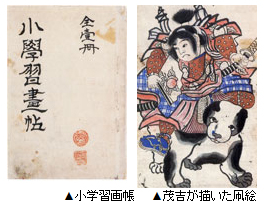 全壹冊
小學習畫帖
▲小学習画帳
▲茂吉が描いた凧絵